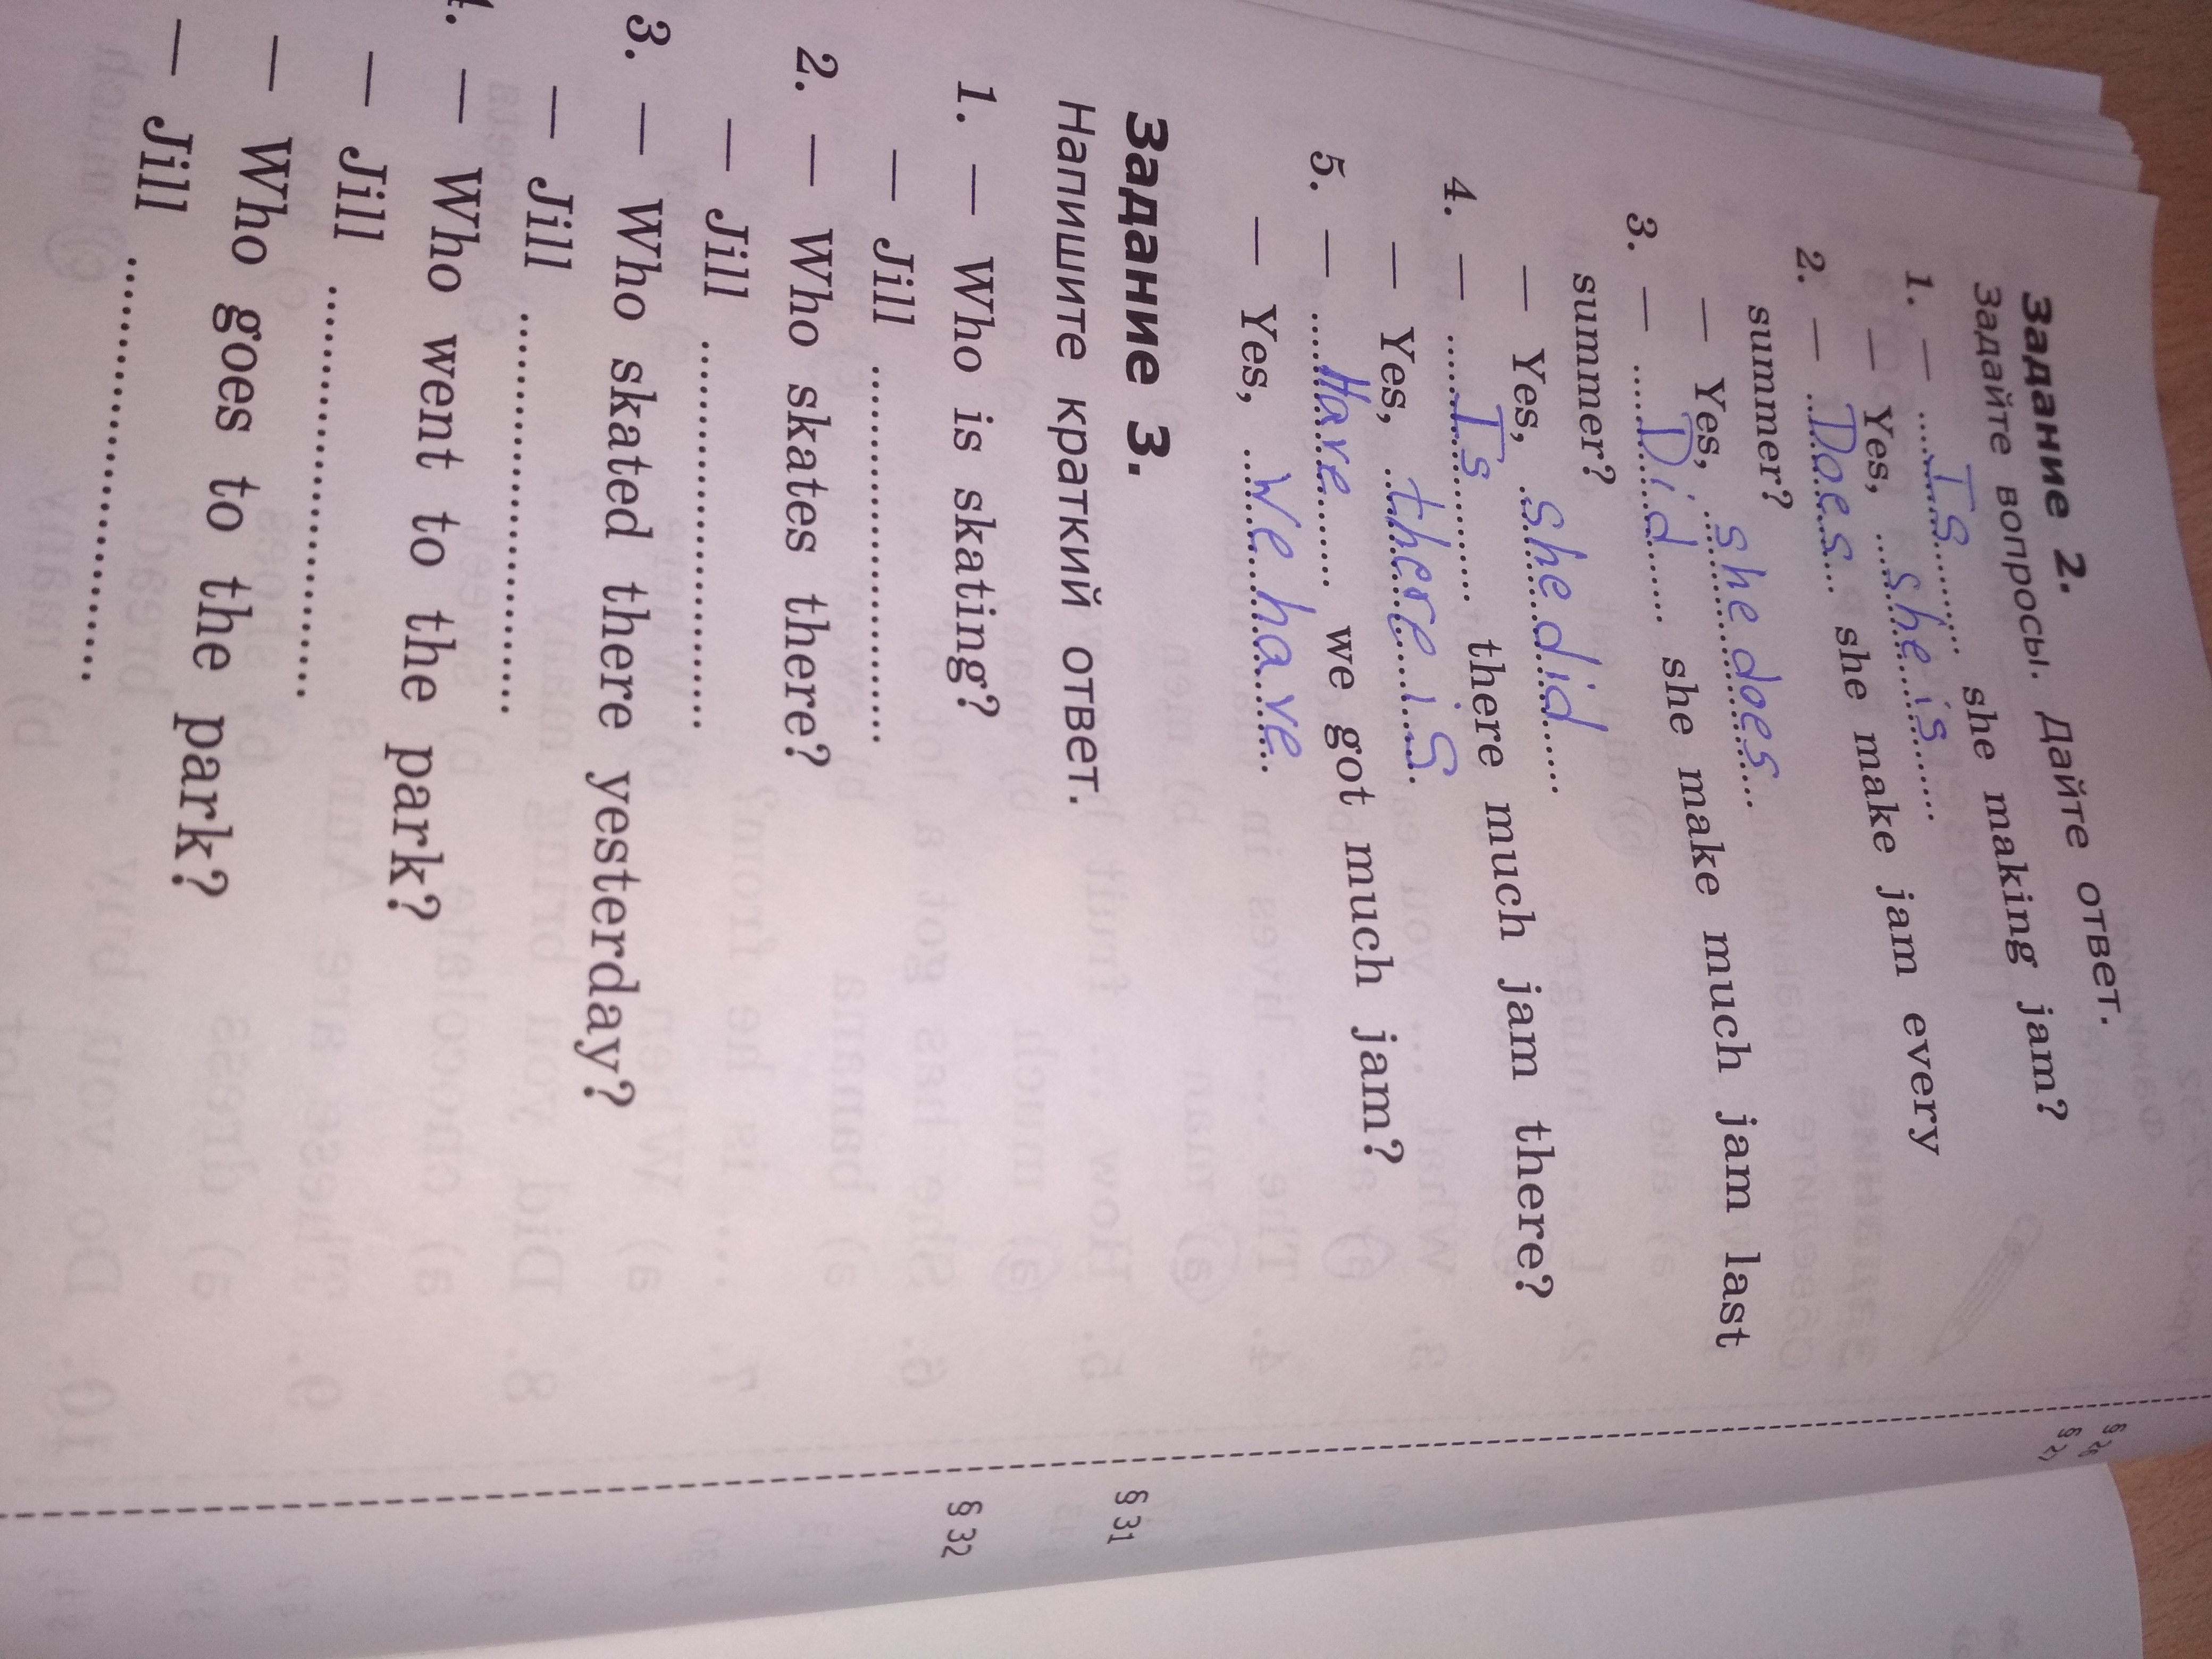 Задание 2.
Задайте вопросы. Дайте ответ.
1. — Is she making jam?
— Yes, she is
2. — Does she make jam every
summer?
— Yes, she does
3. — Did she make much jam last
summer?
— Yes, she did
4. — Is there much jam there?
— Yes, there is
5. — Have we got much jam?
— Yes, We have
Задание 3.
Напишите краткий ответ.
1. — Who is skating?
— Jill
2. — Who skates there?
— Jill
3. — Who skated there yesterday?
— Jill
4. — Who went to the park?
— Jill
— Who goes to the park?
— Jill
§ 31
§ 32